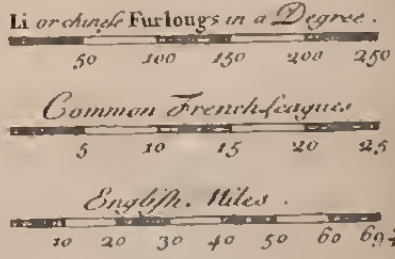 Li or chinese Furlongs in a Degree.
50 100 150 200 250
Common French Leagues
5 10 15 20 25
English. Miles.
10 20 30 40 50 60